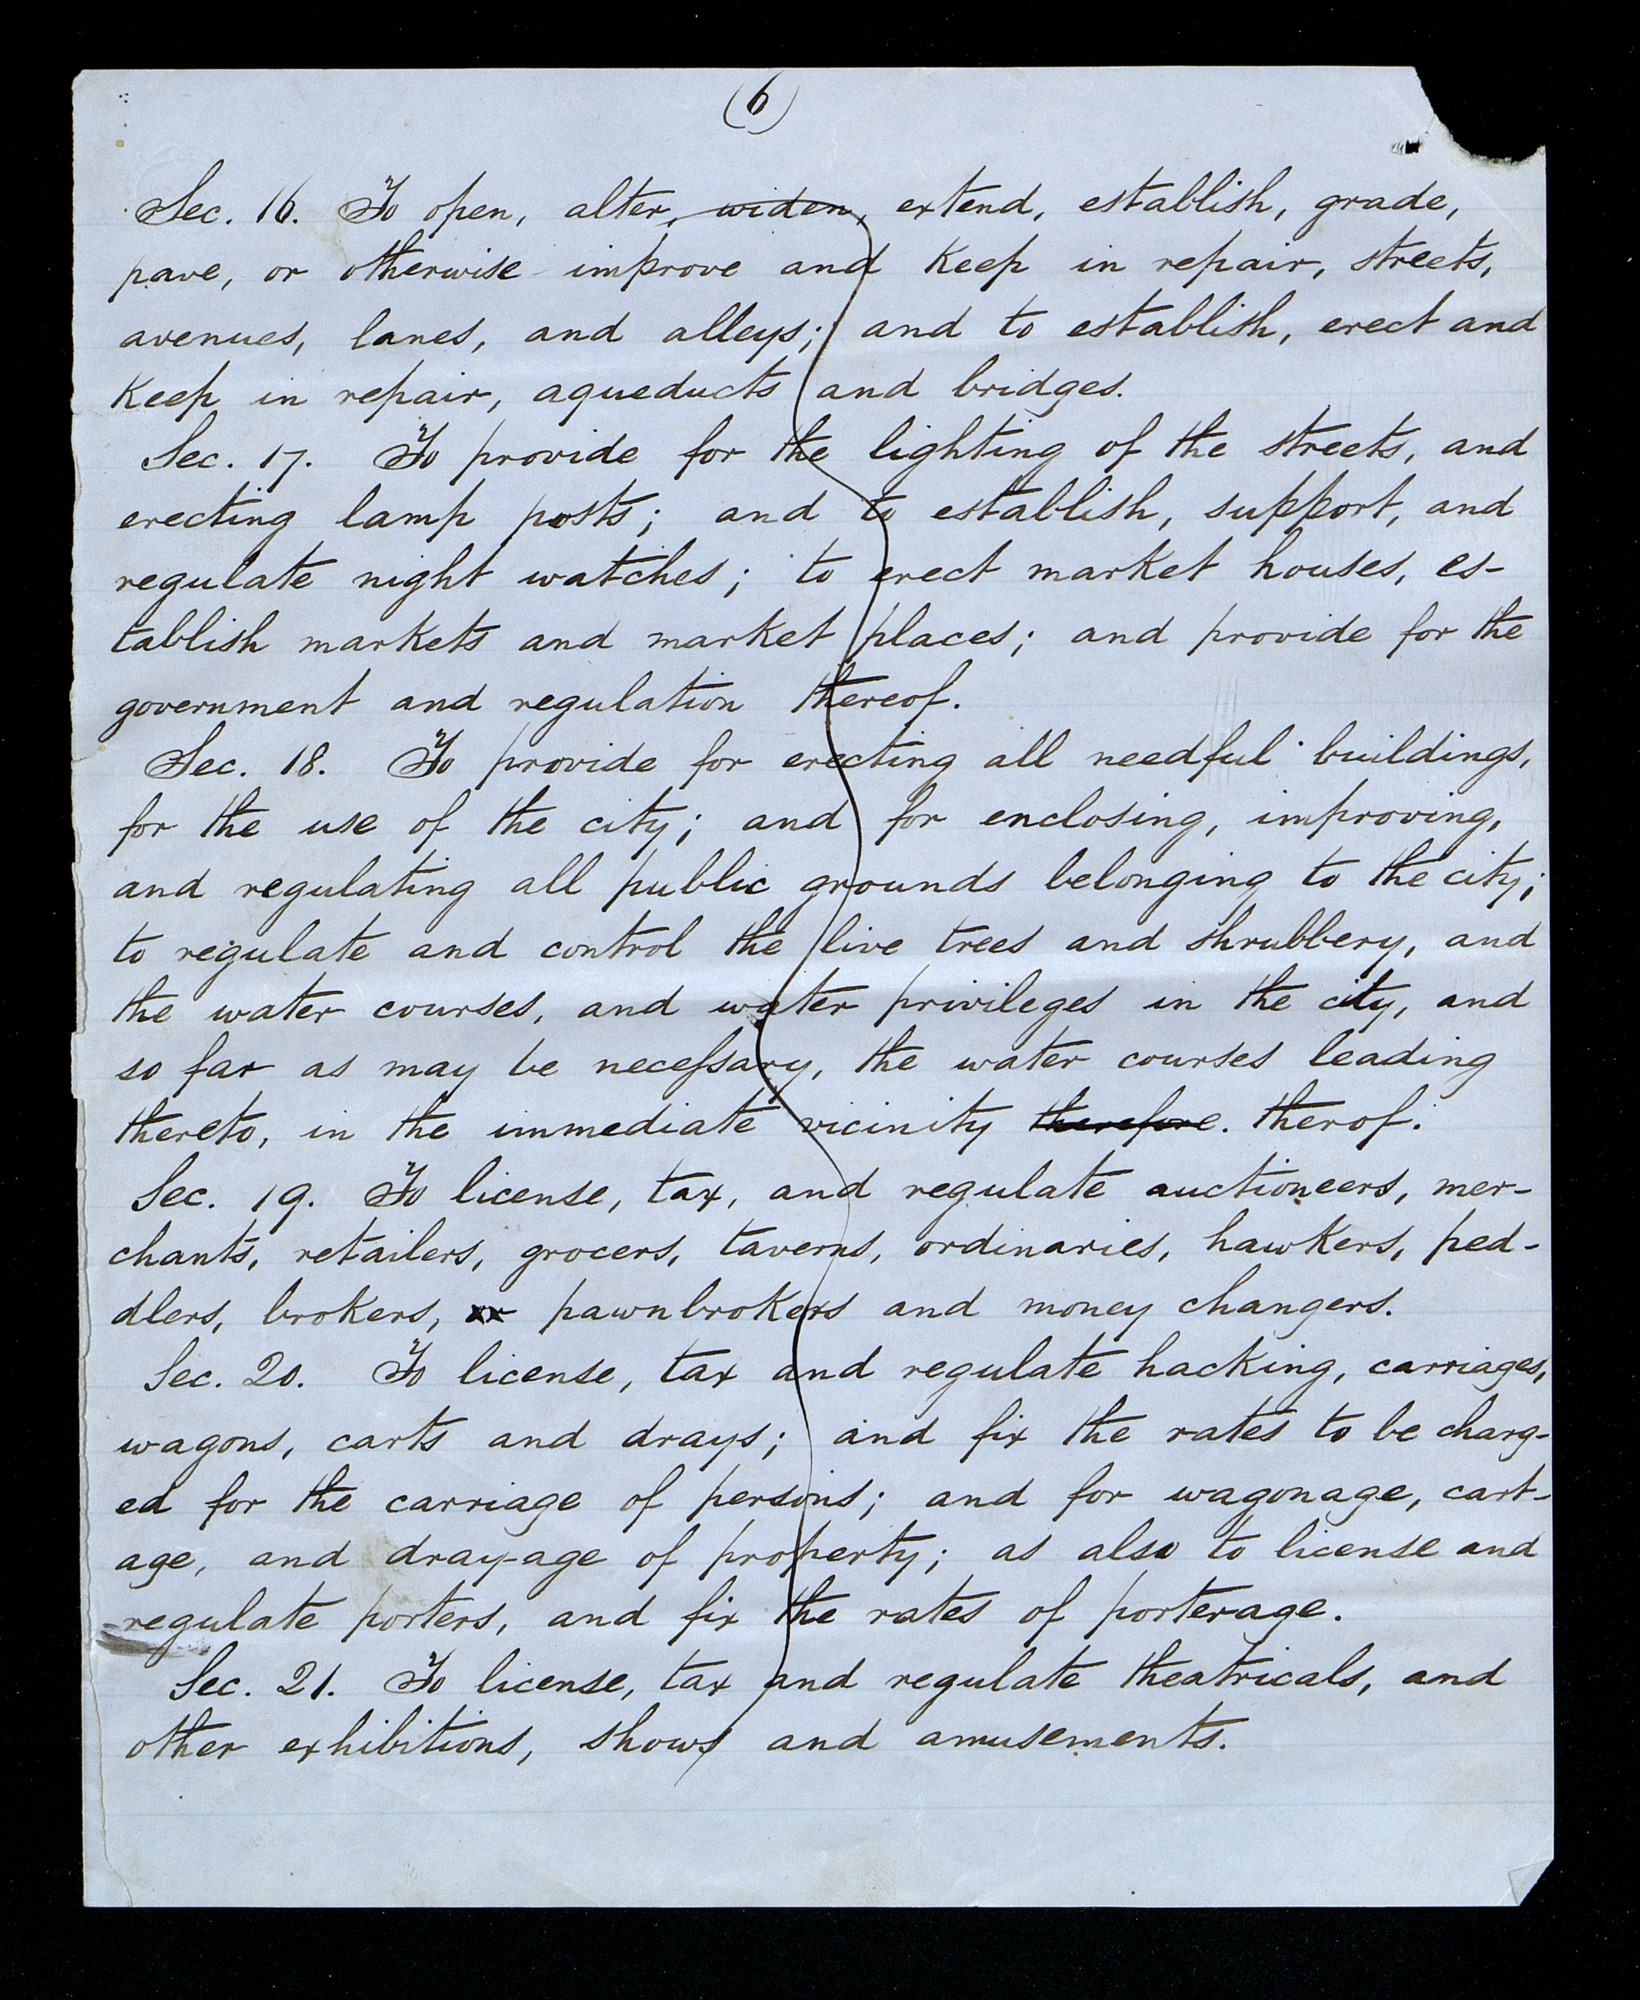 (6)
Sec. 16. To open, alter, widen, extend, establish, grade,
pave, or otherwise improve and keep in repair, streets,
avenues, lanes, and alleys; and to establish, erect and
keep in repair, aqueducts and bridges.
Sec. 17. To provide for the lighting of the streets, and
erecting lamp posts; and to establish, support, and
regulate night watches; to erect market houses, es-
tablish markets and market places; and provide for the
government and regulation thereof.
Sec. 18. To provide for erecting all needful buildings,
for the use of the city; and for enclosing, improving,
and regulating all public grounds belonging to the city;
to regulate and control the live trees and shrubbery, and
the water courses, and water privileges in the city, and
so far as may be necessary, the water courses leading
thereto, in the immediate vicinity therefore. therof.
Sec. 19. To license, tax, and regulate auctioneers, mer-
chants, retailers, grocers, taverns, ordinaries, hawkers, ped-
dlers, brokers, or pawnbrokers and money changers.
Sec. 20. To license, tax and regulate hacking, carriages,
wagons, carts and drays; and fix the rates to be charg-
ed for the carriage of persons; and for wagonage, cart-
age, and dray-age of property; as also to license and
regulate porters, and fix the rates of porterage.
Sec. 21. To license, tax and regulate theatricals, and
other exhibitions, shows and amusements.